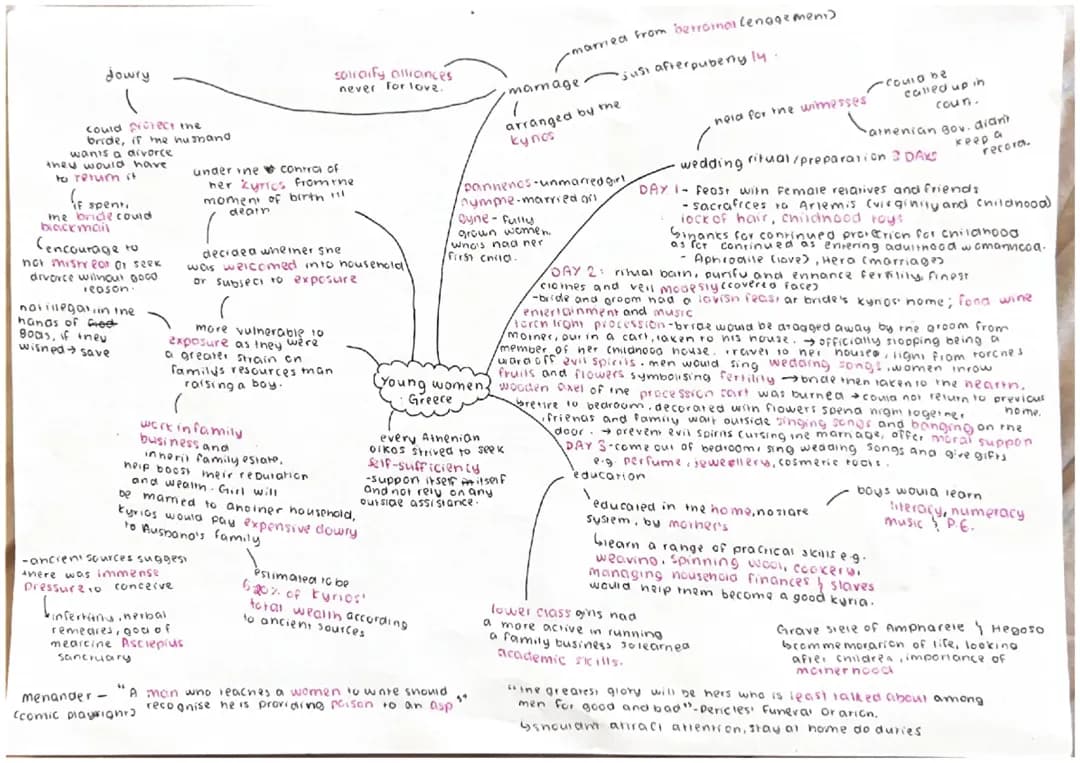 dowry
could protect the
bride, if the husband
wants a divorce
they would have
to return it
if spent,
the bride could
blackmail
encourage to
not mistreat or seek
divorce without good
reason.
solidify alliances
never for love.
marriage
married from betrothal (engagement)
just after puberty 14.
arranged by the
kyrios
parthenos - unmarried girl
nymphe - married girl
gyne - fully
grown women
who's had her
first child.
under the control of
her kyrios from the
moment of birth till
death
decided whether she
was welcomed into household
or subject to exposure
more vulnerable to
exposure as they were
a greater strain on
family's resources than
raising a boy.
not illegal, in the
hands of
gods, if they
wished → save
work in family
business and
inherit family estate,
help boost their reputation
and wealth. Girl will
be married to another household,
kyrios would pay expensive dowry
to husband's family
estimated to be
20% of kyrios'
total wealth according
to ancient sources
- ancient sources suggest
there was immense
pressure to conceive
infertility, herbal
remedies, god of
medicine Asclepius
sanctuary
Young women
Greece
every Athenian
oikos strived to seek
self-sufficiency
- support itself itself
and not rely on any
outside assistance.
wedding ritual/preparation 3 DAYS
held for the witnesses
could be
called up in
court.
athenian gov. didn't
keep a
record.
DAY 1 - feast with female relatives and friends
- sacrifices to Artemis (virginity and childhood)
lock of hair, childhood toys
↳ thanks for continued protection for childhood
as for continued as entering adulthood womanhood.
- Aphrodite (love), Hera (marriage)
DAY 2: ritual bath, purify and enhance fertility, finest
clothes and veil modesty (covered face)
- bride and groom had a lavish feast at bride's kyrios' home; food wine
entertainment and music
torch light procession - bride would be dragged away by the groom from
mother, put in a cart, taken to his house. → officially stopping being a
member of her childhood house. travel to her house, light from torches
ward off evil spirits. men would sing wedding songs. women throw
fruits and flowers symbolising fertility → bride then taken to the hearth,
wooden axel of the procession cart was burned → could not return to previous
home.
retire to bedroom, decorated with flowers spend night together
, friends and family wait outside singing songs and banging on the
door. → prevent evil spirits cursing the marriage, offer moral support
DAY 3 - come out of bedroom, sing wedding songs and give gifts
e.g. perfume, jewellery, cosmetic tools.
education
educated in the home, no state
system, by mother's
boys would learn
literacy, numeracy
music & P.E.
↳ learn a range of practical skills e.g.
weaving, spinning wool, cookery,
managing household finances & slaves
would help them become a good kyria.
lower class girls had
a more active in running
a family business so learned
academic skills.
Grave stele of Ampharete & Hegeso
↳ commemoration of life, looking
after children, importance of
motherhood
menander - "A man who teaches a women to write should
(comic playwright) recognise he is providing poison to an asp"
"the greatest glory will be hers who is least talked about among
men for good and bad" - Pericles' Funeral Oration.
↳ shouldn't attract attention, stay at home do duties